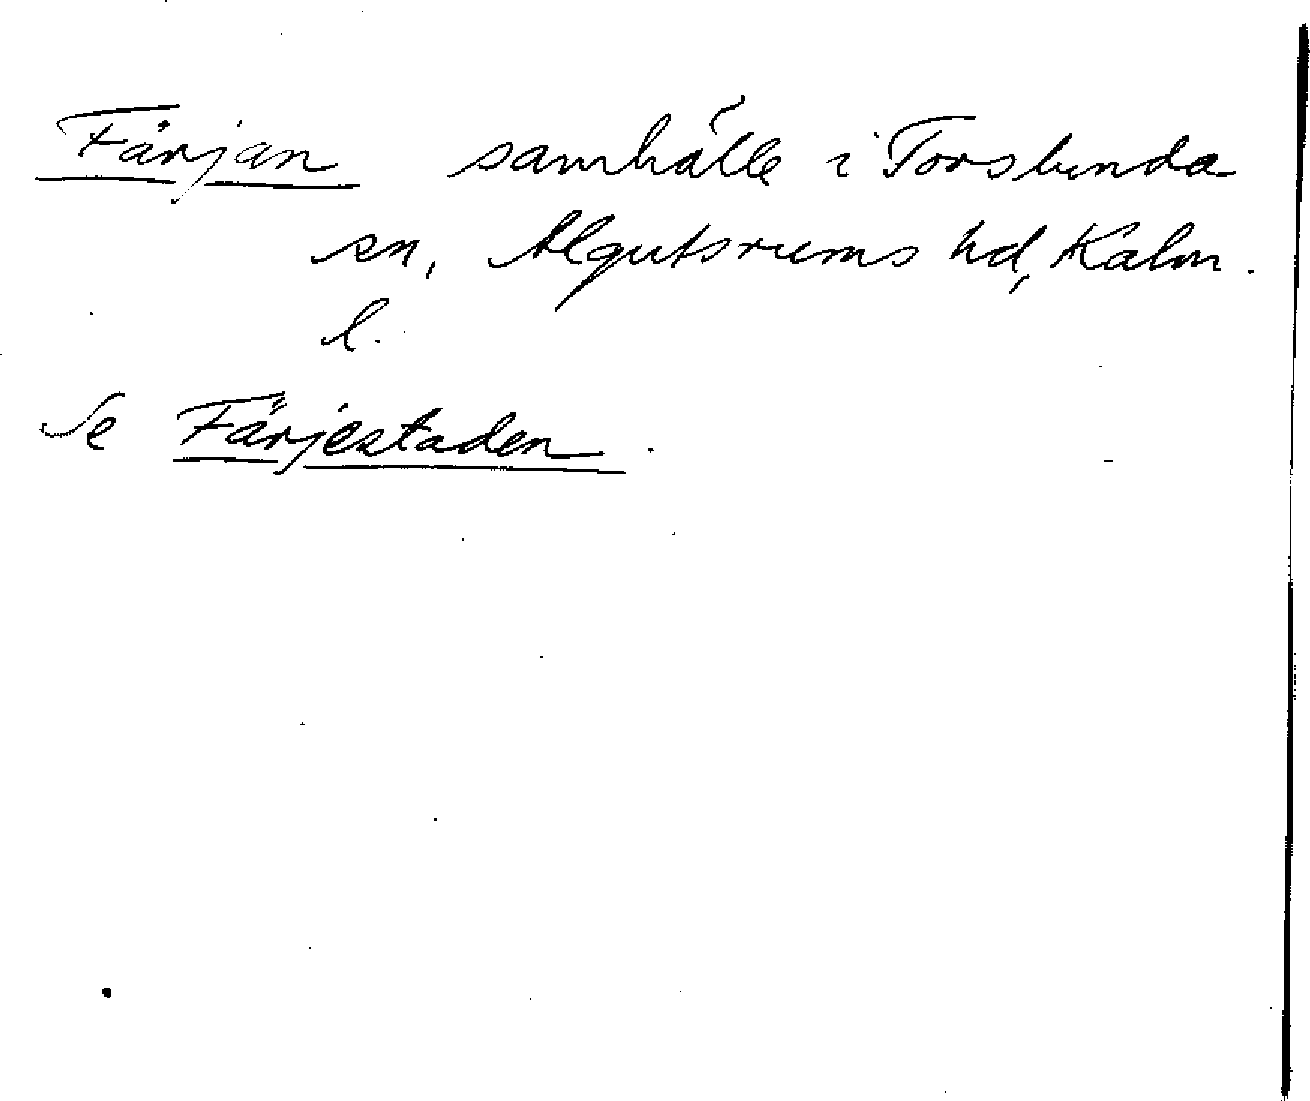 Färjan samhälle i Torslunda
sn, Algutsrums hd, Kalm.
l.
Se Färjestaden.